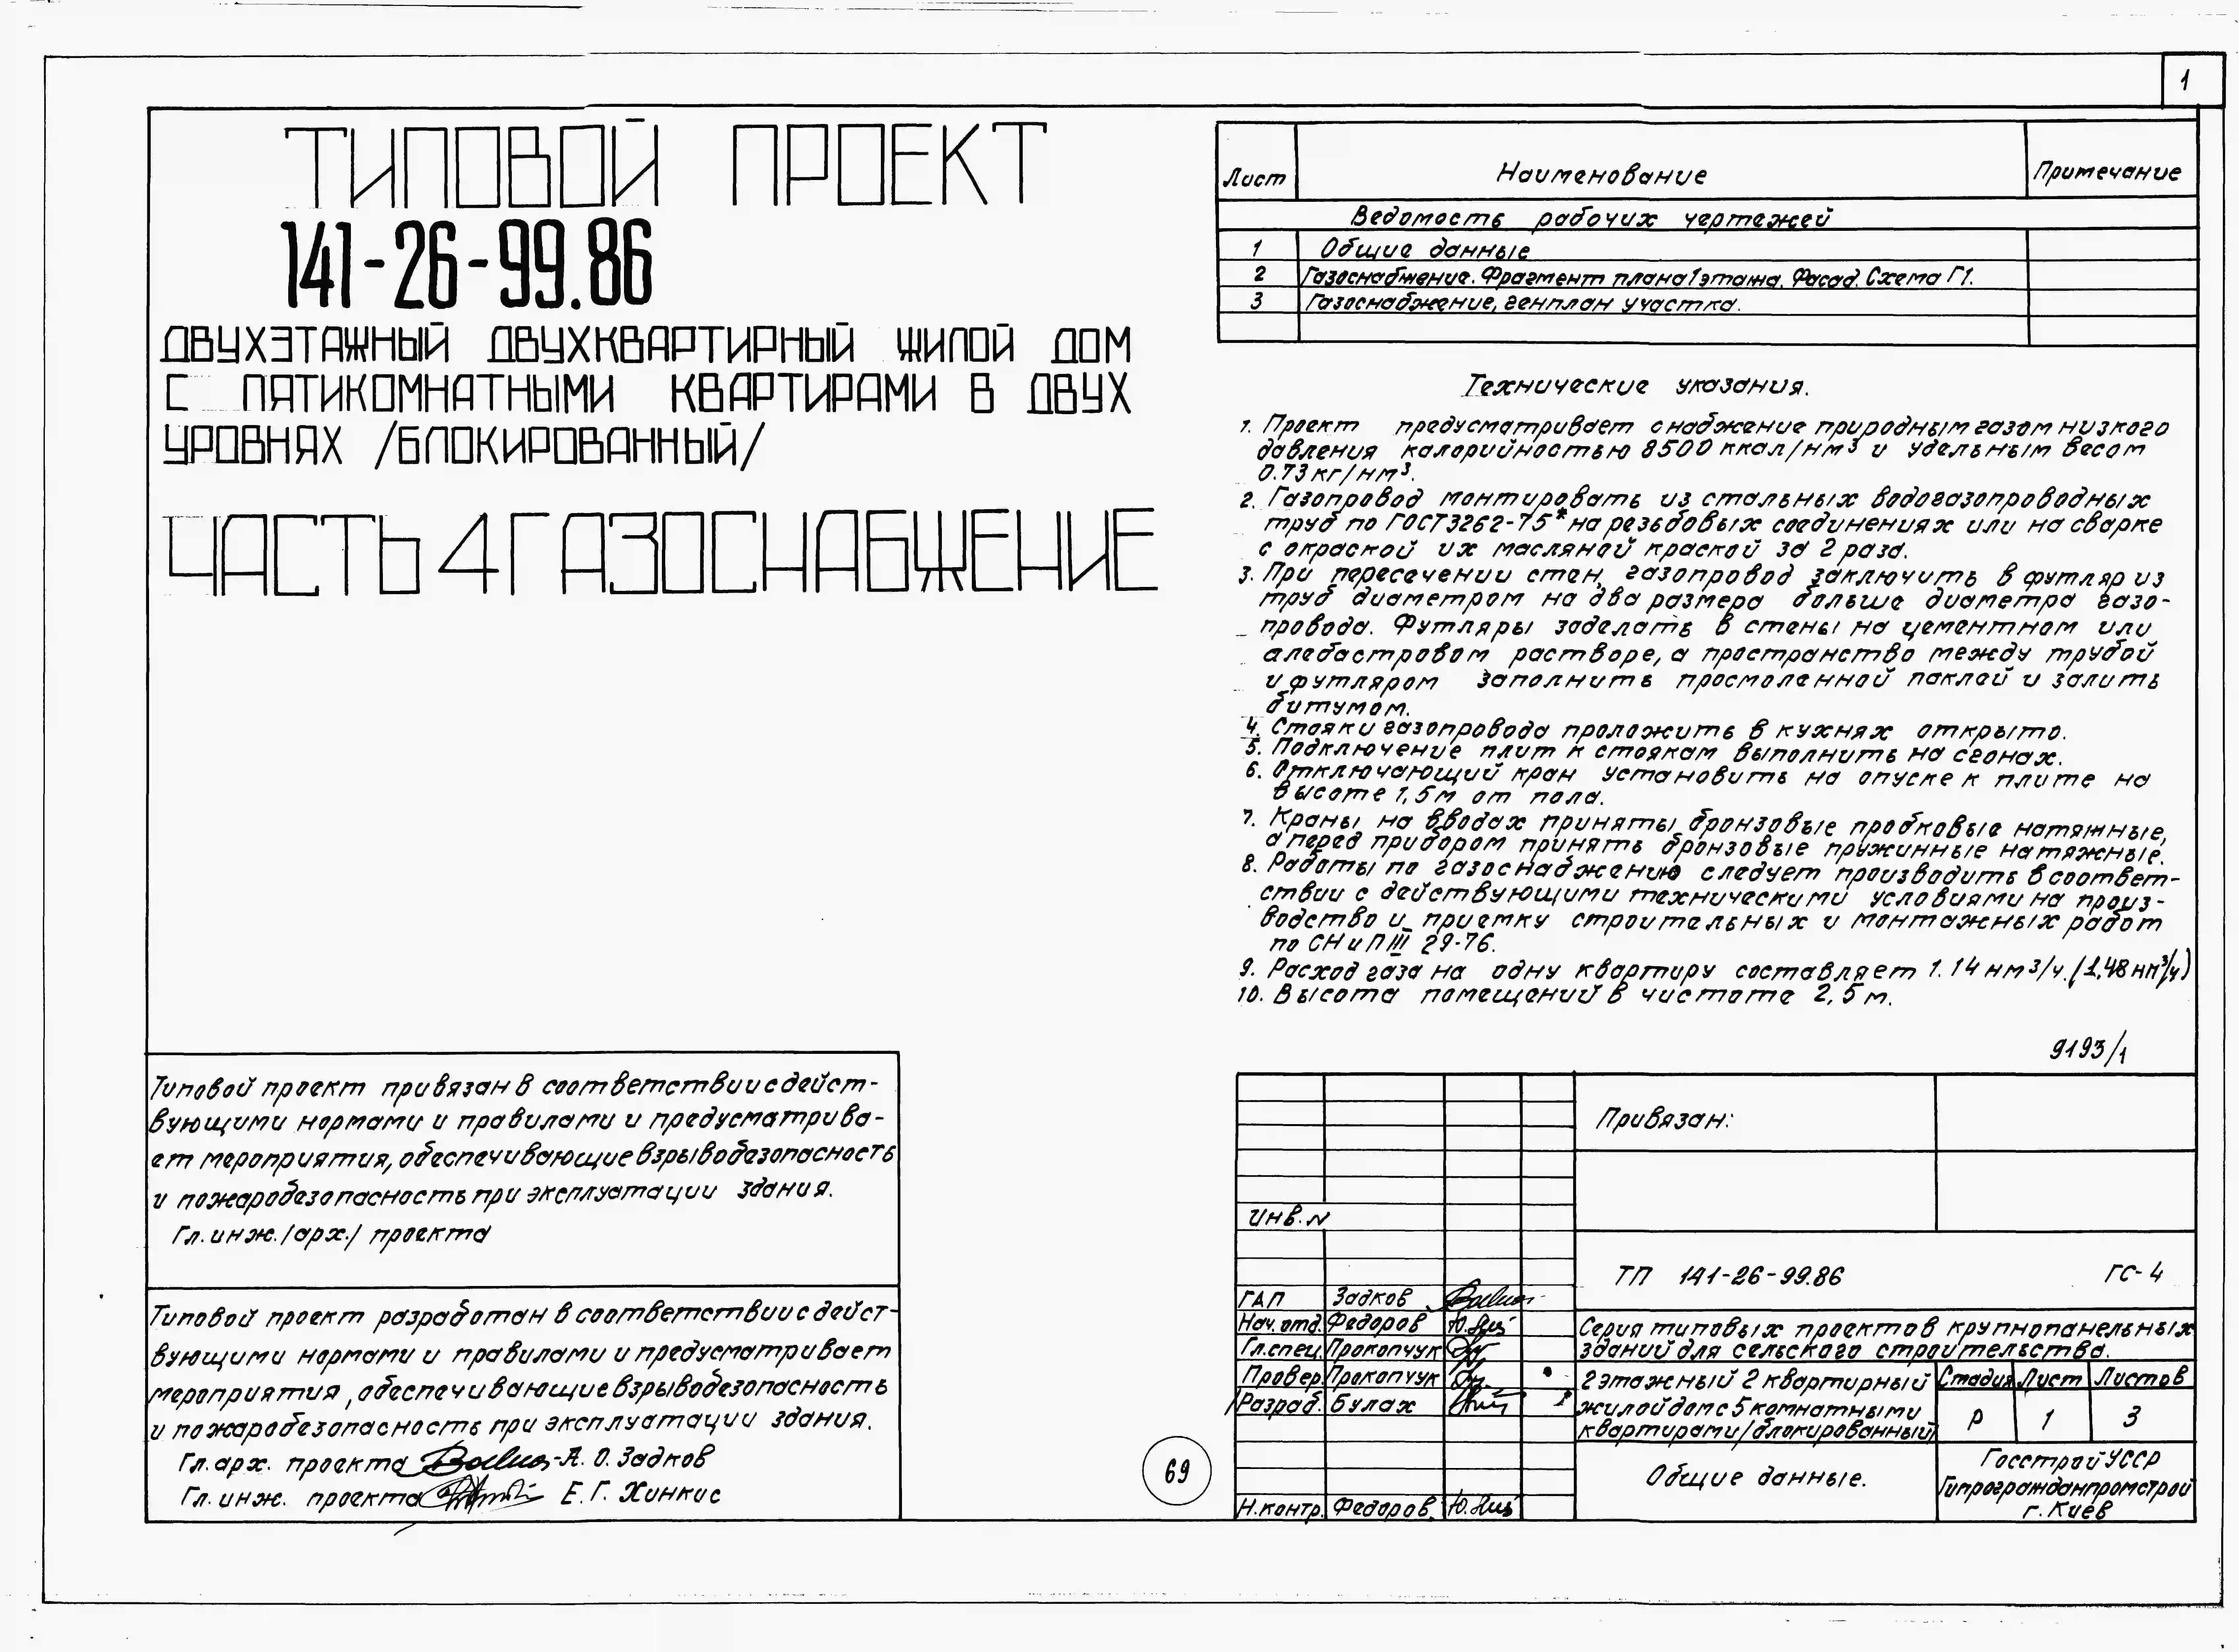 1
ТИПОВОЙ ПРОЕКТ
141-26-99.86
ДВУХЭТАЖНЫЙ ДВУХКВАРТИРНЫЙ ЖИЛОЙ ДОМ
С ПЯТИКОМНАТНЫМИ КВАРТИРАМИ В ДВУХ
УРОВНЯХ /БЛОКИРОВАННЫЙ/
ЧАСТЬ 4 ГАЗОСНАБЖЕНИЕ
Лист Наименование Примечание
Ведомость рабочих чертежей
1 Общие данные
2 Газоснабжение. Фрагмент плана 1 этажа. Фасад. Схема Г1.
3 Газоснабжение, генплан участка.
Технические указания.
1. Проект предусматривает снабжение природным газом низкого
давления калорийностью 8500 ккал/нм³ и удельным весом
0.73 кг/нм³.
2. Газопровод монтировать из стальных водогазопроводных
труб по ГОСТ3262-75* на резьбовых соединениях или на сварке
с окраской их масляной краской за 2 раза.
3. При пересечении стен, газопровод заключить в футляр из
труб диаметром на два размера больше диаметра газо-
провода. Футляры заделать в стены на цементном или
алебастровом растворе, а пространство между трубой
и футляром заполнить просмоленной паклей и залить
битумом.
4. Стояки газопровода проложить в кухнях открыто.
5. Подключение плит к стоякам выполнить на сгонах.
6. Отключающий кран установить на опуске к плите на
высоте 1,5м от пола.
7. Краны на вводах приняты бронзовые пробковые натяжные,
а перед прибором принять бронзовые пружинные натяжные.
8. Работы по газоснабжению следует производить в соответ-
ствии с действующими техническими условиями на произ-
водство и приемку строительных и монтажных работ
по СНиП III 29-76.
9. Расход газа на одну квартиру составляет 1.14 нм³/ч. (1,48 нм³/ч)
10. Высота помещений в чистоте 2,5 м.
9193/1
Типовой проект привязан в соответствии с дейст-
вующими нормами и правилами и предусматрива-
ет мероприятия, обеспечивающие взрывобезопасность
и пожаробезопасность при эксплуатации здания.
Гл. инж. /арх./ проекта
Типовой проект разработан в соответствии с дейст-
вующими нормами и правилами и предусматривает
мероприятия, обеспечивающие взрывобезопасность
и пожаробезопасность при эксплуатации здания.
Гл. арх. проекта А. О. Задков
Гл. инж. проекта Е. Г. Хинкис
69
Привязан:
Инв. N
ТП 141-26-99.86 ГС-4
ГАП Задков
Нач. отд. Федоров
Гл. спец. Прокопчук
Провер. Прокопчук
Разраб. Булах
Н. контр. Федоров
Серия типовых проектов крупнопанельных
зданий для сельского строительства.
2 этажный 2 квартирный
жилой дом с 5 комнатными
квартирами /блокированный/
Стадия Лист Листов
Р 1 3
Общие данные.
Госстрой УССР
Гипрогражданпромстрой
г. Киев